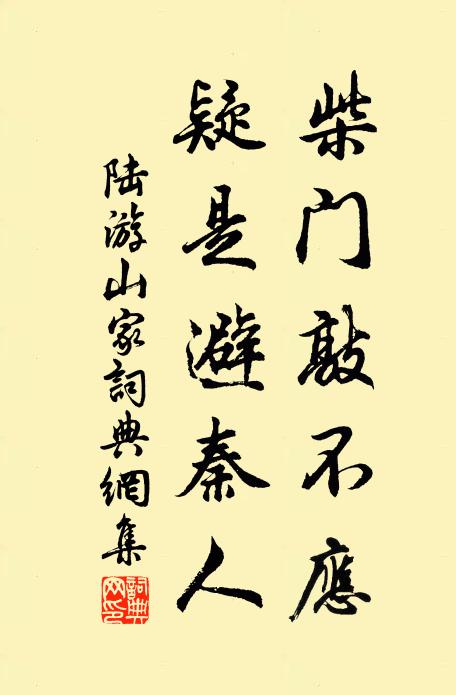 柴门敲不應
疑是避秦人
陆游山家詞典網集
詞典
网印